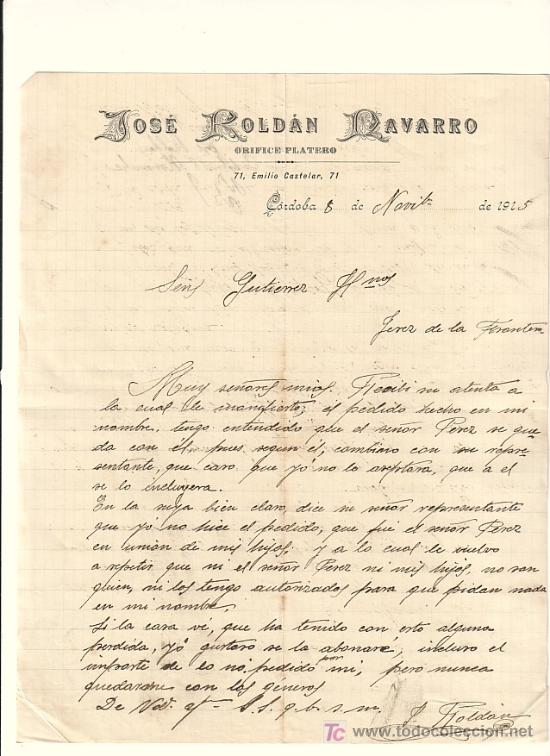 JOSÉ ROLDÁN NAVARRO
ORIFICE PLATERO
71, Emilio Castelar, 71
Córdoba 8 de Novbre de 1915
Señs Gutierrez Hnos
Jerez de la Frontera
Muy señores mios. Recibi su atenta a
la cual le manifiesto; el pedido hecho en mi
nombre, tengo entendido que el señor Perez se que
da con él pues segun él, combino con su repre-
sentante, que caso que yo no lo aseptara, que a el
se lo incluyera.
En la suya bien claro, dice su señor representante
que yo no hice el pedido, que fué el señor Pérez
en union de mis hijos; y a lo cual le vuelvo
a repetir que ni el señor Perez ni mis hijos, no son
quien, ni los tengo autorizados para que pidan nada
en mi nombre.
Si la casa vé, que ha tenido con esto alguna
perdida, yo gustoso se la abonare, incluso el
importe de lo no pedido por mi, pero nunca
quedarme con los generos
De Vd. afmo S. S. q. b. s. m.
J. Roldán
TC www.todocoleccion.net